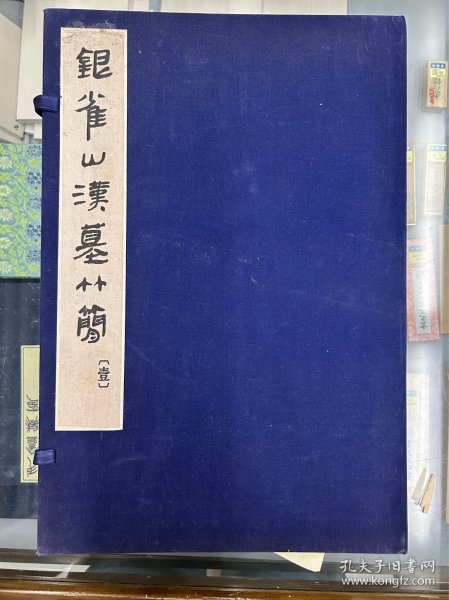 銀雀山漢墓竹簡
〔壹〕
孔夫子旧书网
www.kongfz.com